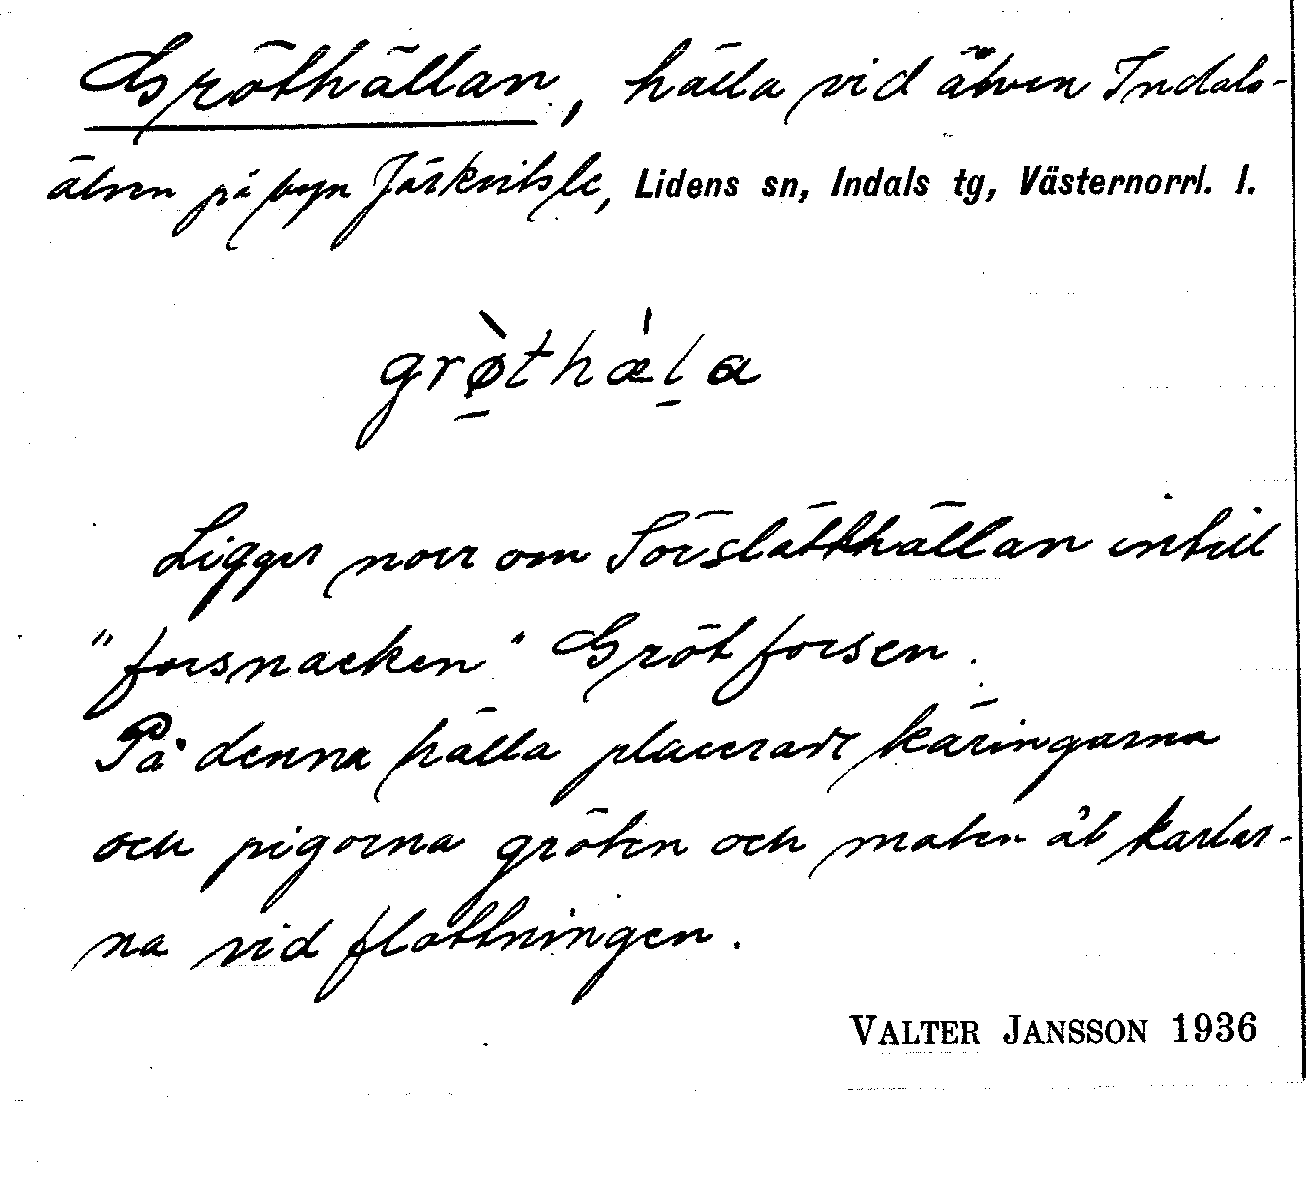 Gröthällan, hälla vid älven Indals-
älven på byn Järkvitsle, Lidens sn, Indals tg, Västernorrl. l.
grø̀thæ̍la
Ligger norr om Sörslåtthällan intill
"forsnacken" Grötforsen.
På denna hälla placerade käringarna
och pigorna gröten och maten åt karlar-
na vid flottningen.
VALTER JANSSON 1936